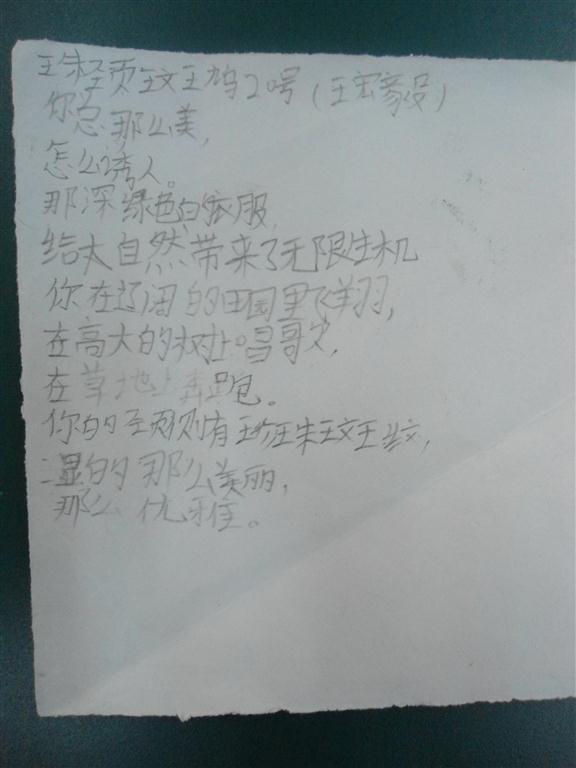 珠颈斑鸠2号(王宏毅)
你总那么美,
怎么诱人。
那深绿色的衣服,
给大自然带来了无限生机
你在辽阔的田园里飞翔,
在高大的树上唱歌,
在草地上奔跑。
你的颈则有珍珠斑纹,
显的那么美丽,
那么优雅。